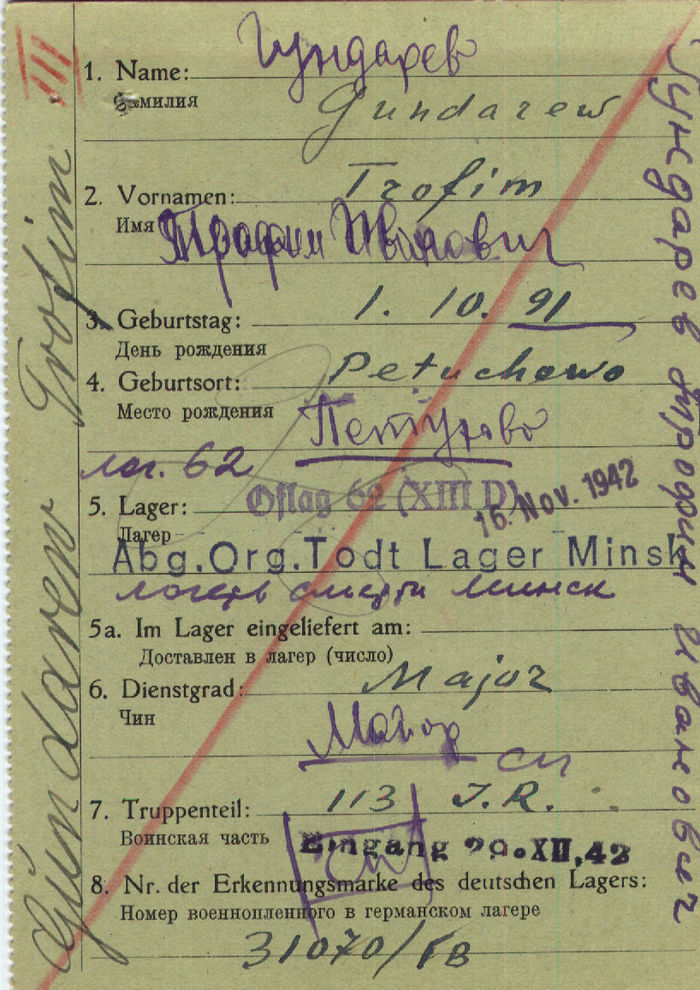 III
Гундарев
1. Name:
Фамилия
Gundarew
2. Vornamen: Trofim
Имя Трофим Иванович
3. Geburtstag: 1. 10. 91
День рождения
4. Geburtsort: Petuchowo
Место рождения
Петухово
лаг. 62
5. Lager: Oflag 62 (XIII D) 16. Nov. 1942
Лагерь
Abg.Org.Todt Lager Minsk
лагерь смерти Минск
5a. Im Lager eingeliefert am:
Доставлен в лагер (число)
6. Dienstgrad: Major
Чин
Маіор
7. Truppenteil: 113 I.R.
Воинская часть
Eingang 29.XII.42
8. Nr. der Erkennungsmarke des deutschen Lagers:
Номер военнопленного в германском лагере
31070/
Gundarew Trofim
Гундарев Трофим Иванович